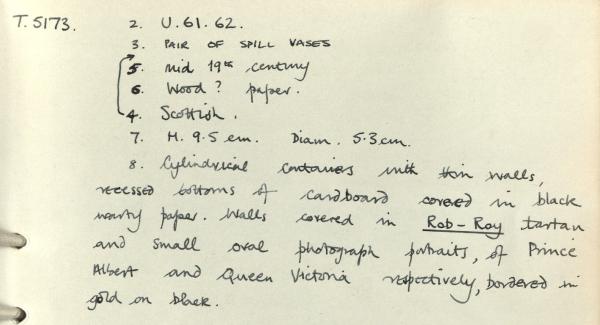 T. 5173.
2. U. 61. 62.
3. PAIR OF SPILL VASES
5. Mid 19th century
6. Wood? paper.
4. Scottish.
7. H. 9.5 cm. Diam. 5.3 cm.
8. Cylindrical containers with thin walls,
recessed bottoms of cardboard covered in black
warty paper. Walls covered in Rob-Roy tartan
and small oval photograph portraits, of Prince
Albert and Queen Victoria respectively, bordered in
gold on black.